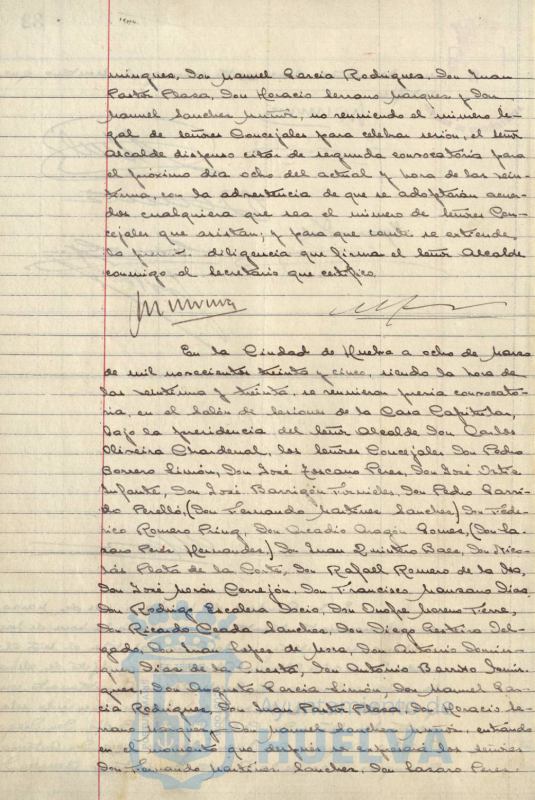 mingues, Don Manuel Garcia Rodrigues, Don Juan
Pastor Plasa, Don Horacio Serrano Marques y Don
Manuel Sanches Muñoz, no reuniendo el número le-
gal de señores Concejales para celebrar sesion, el señor
Alcalde dispuso citar de segunda convocatoria para
el próximo dia ocho del actual y hora de las vein-
tiuna, con la advertencia de que se adoptarán acuer-
dos cualquiera que sea el número de señores Con-
cejales que asistan; y para que conste se extiende
la diligencia que firma el señor Alcalde
conmigo el Secretario que certifico.
En la Ciudad de Huelva a ocho de Marzo
de mil novecientos treinta y cinco, siendo la hora de
las veintiuna y treinta, se reunieron previa convocato-
ria, en el Salón de Sesiones de la Casa Capitular,
bajo la presidencia del señor Alcalde Don Carlos
Oliveira Chardenal, los señores Concejales Don Pedro
Borrero Limón, Don José Toscano Peres, Don José Ortiz
Infante, Don José Barrigón Don Pedro Garri-
do Perelló, (Don Fernando Martines Sanches) Don Fede-
rico Romero Don Arcadio Aragón Gomes, (Don La-
zaro Peres Hernandes) Don Juan Quintero Baez, Don Nico-
lás de la Corte, Don Rafael Romero de la
Don José Morán Correjón, Don Francisco Manzano Dias
Don Rodrigo Escalera Don Onofre Moreno
Don Ricardo Sanches, Don Diego Del-
gado, Don Juan Lopes de Mora, Don Antonio Domin-
gues Dias de la Cuesta, Don Antonio Barroso
Don Augusto Garcia Limón, Don Manuel Gar-
cia Rodrigues, Don Juan Pastor Plasa, Don Horacio Se-
rrano Marques y Don Manuel Sanches Muñoz, entrando
en el momento que después se expresará los señores
Don Fernando Martines Sanches, Don Lazaro Peres
HUELVA